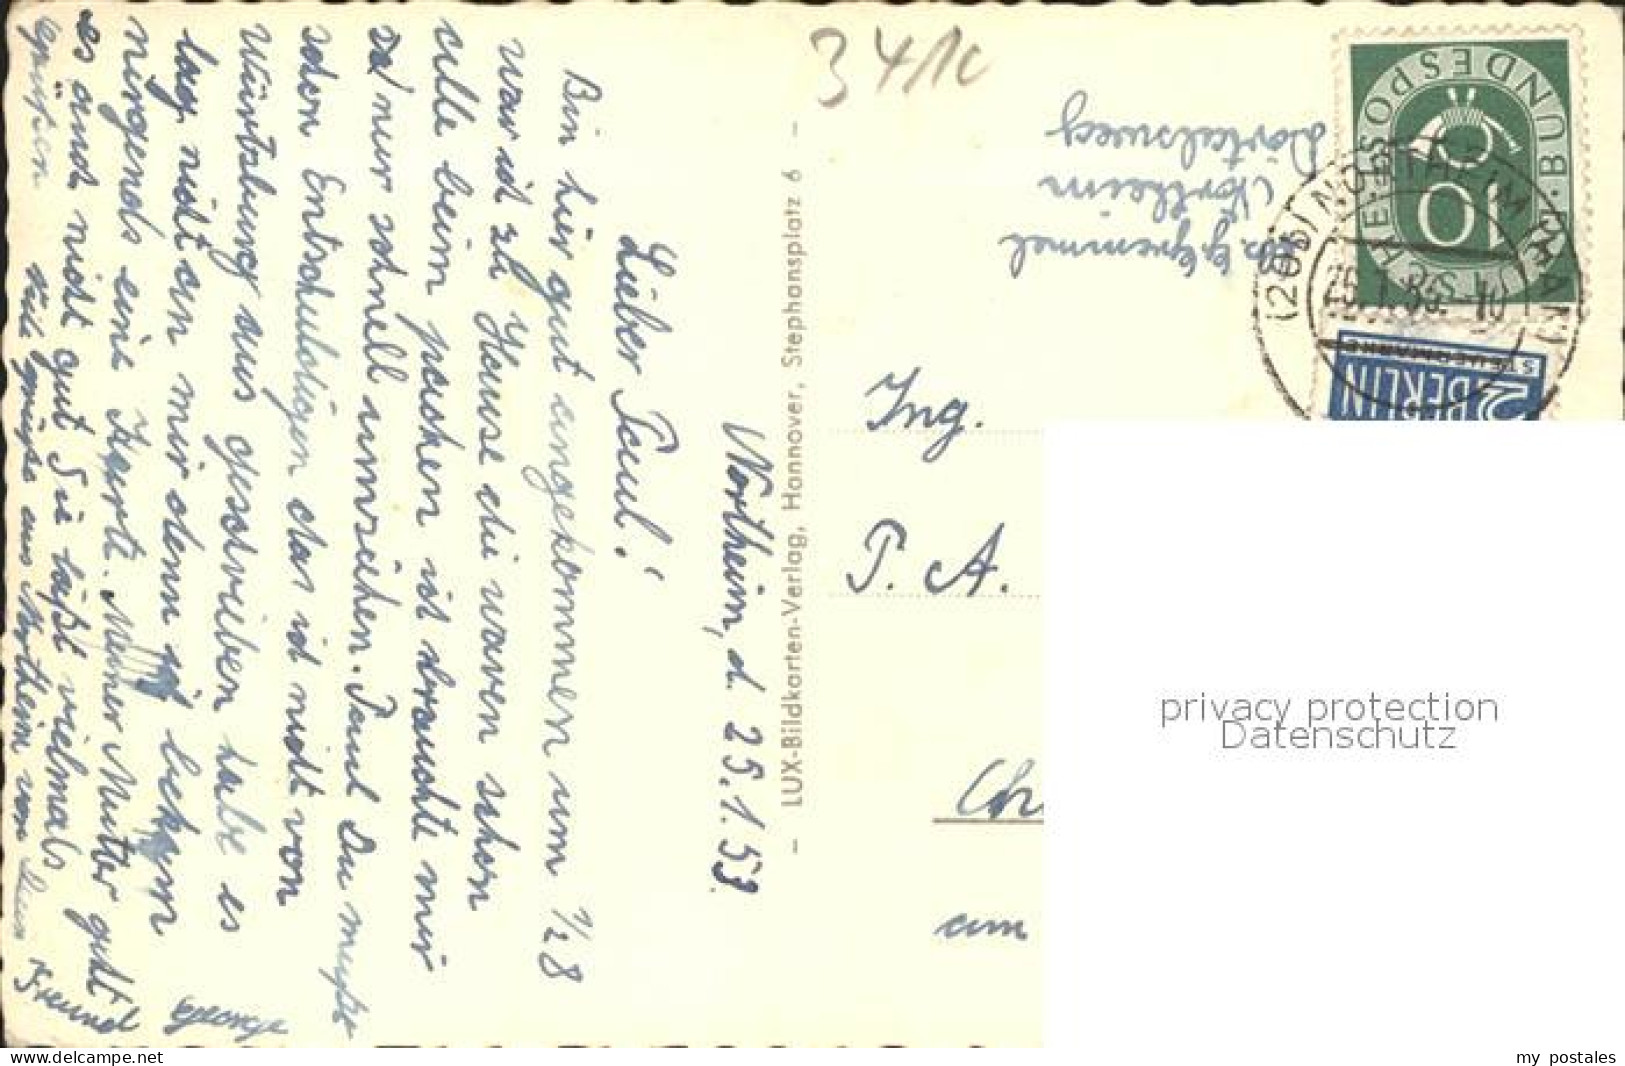 Northeim, d. 25.1.53
Lieber Paul!
Bin hier gut angekommen um 1/2 8
war ich zu Hause die waren schon
alle beim paschen ich brauchte mir
nur schnell umziehen. Paul Du mußt
schon Entschuldigen das ich nicht von
Würtzburg aus geschrieben habe es
lag nicht an mir denn ich bekam
nirgends eine Karte. Meiner Mutter geht
es auch nicht gut Sie läßt vielmals
grüßen Viele grüße aus Northeim von Dein
Freund George
- LUX-Bildkarten-Verlag, Hannover, Stephansplatz 6 -
34/1c
Ing.
P. A.
Chr
am
Northeim
DEUTSCHE BUNDESPOST
10
(20b) NORTHEIM (HAN)
25.1.53.-10
2 BERLIN
STEUERMARKE
privacy protection
Datenschutz
www.delcampe.net
my_postales